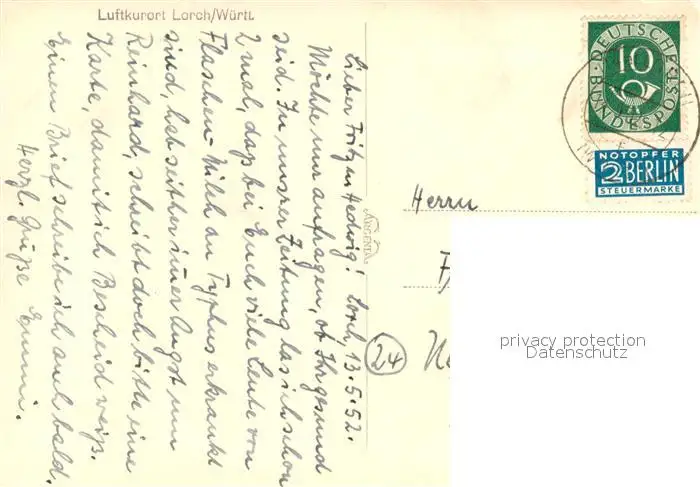 Luftkurort Lorch/Württ.
Lieber Fritz u Hedwig! Lorch, 13.5.52.
Möchte nur anfragen, ob Ihr gesund
seid. In unsrer Zeitung las ich schon
2 mal, dass bei Euch viele Leute von
Flaschen-Milch an Typhus erkrankt
sind, hab seither immer Angst um
Reinhard, schreibt doch bitte eine
Karte, damit ich Bescheid weiß.
Einen Brief schreibe ich auch bald.
Herzl. Grüße Emmi.
ARGENDA
DEUTSCHE
BUNDESPOST
10
NOTOPFER
2 BERLIN
STEUERMARKE
Herrn
24
privacy protection
Datenschutz